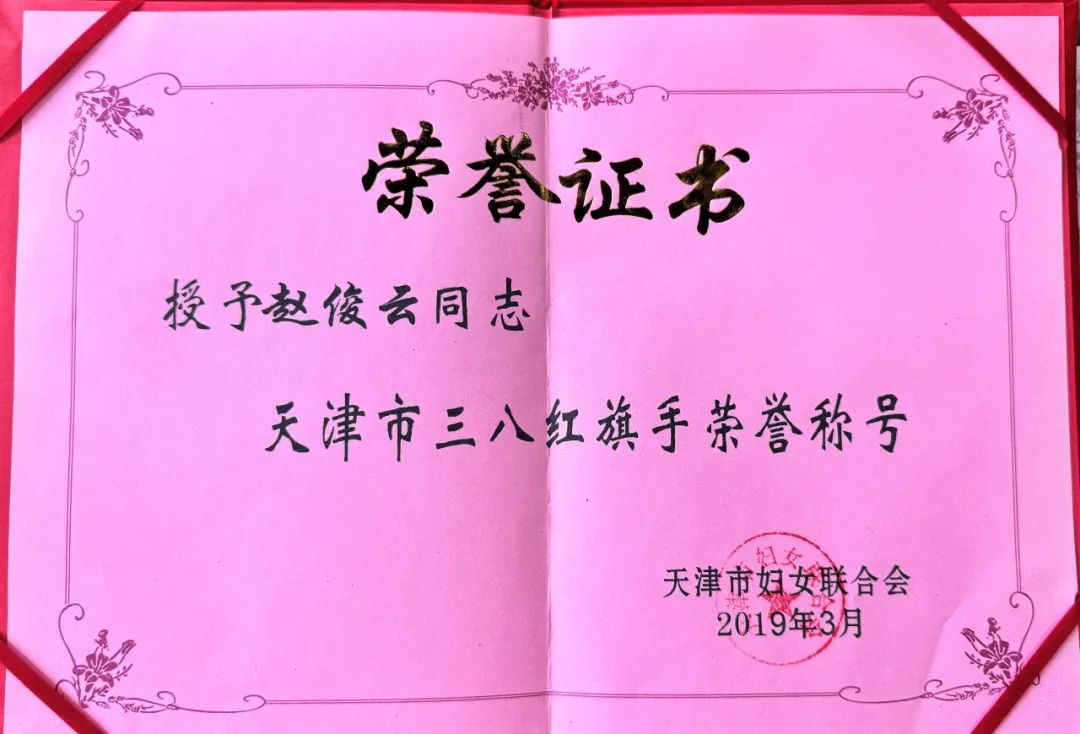 荣誉证书
授予赵俊云同志
天津市三八红旗手荣誉称号
天津市妇女联合会
2019年3月